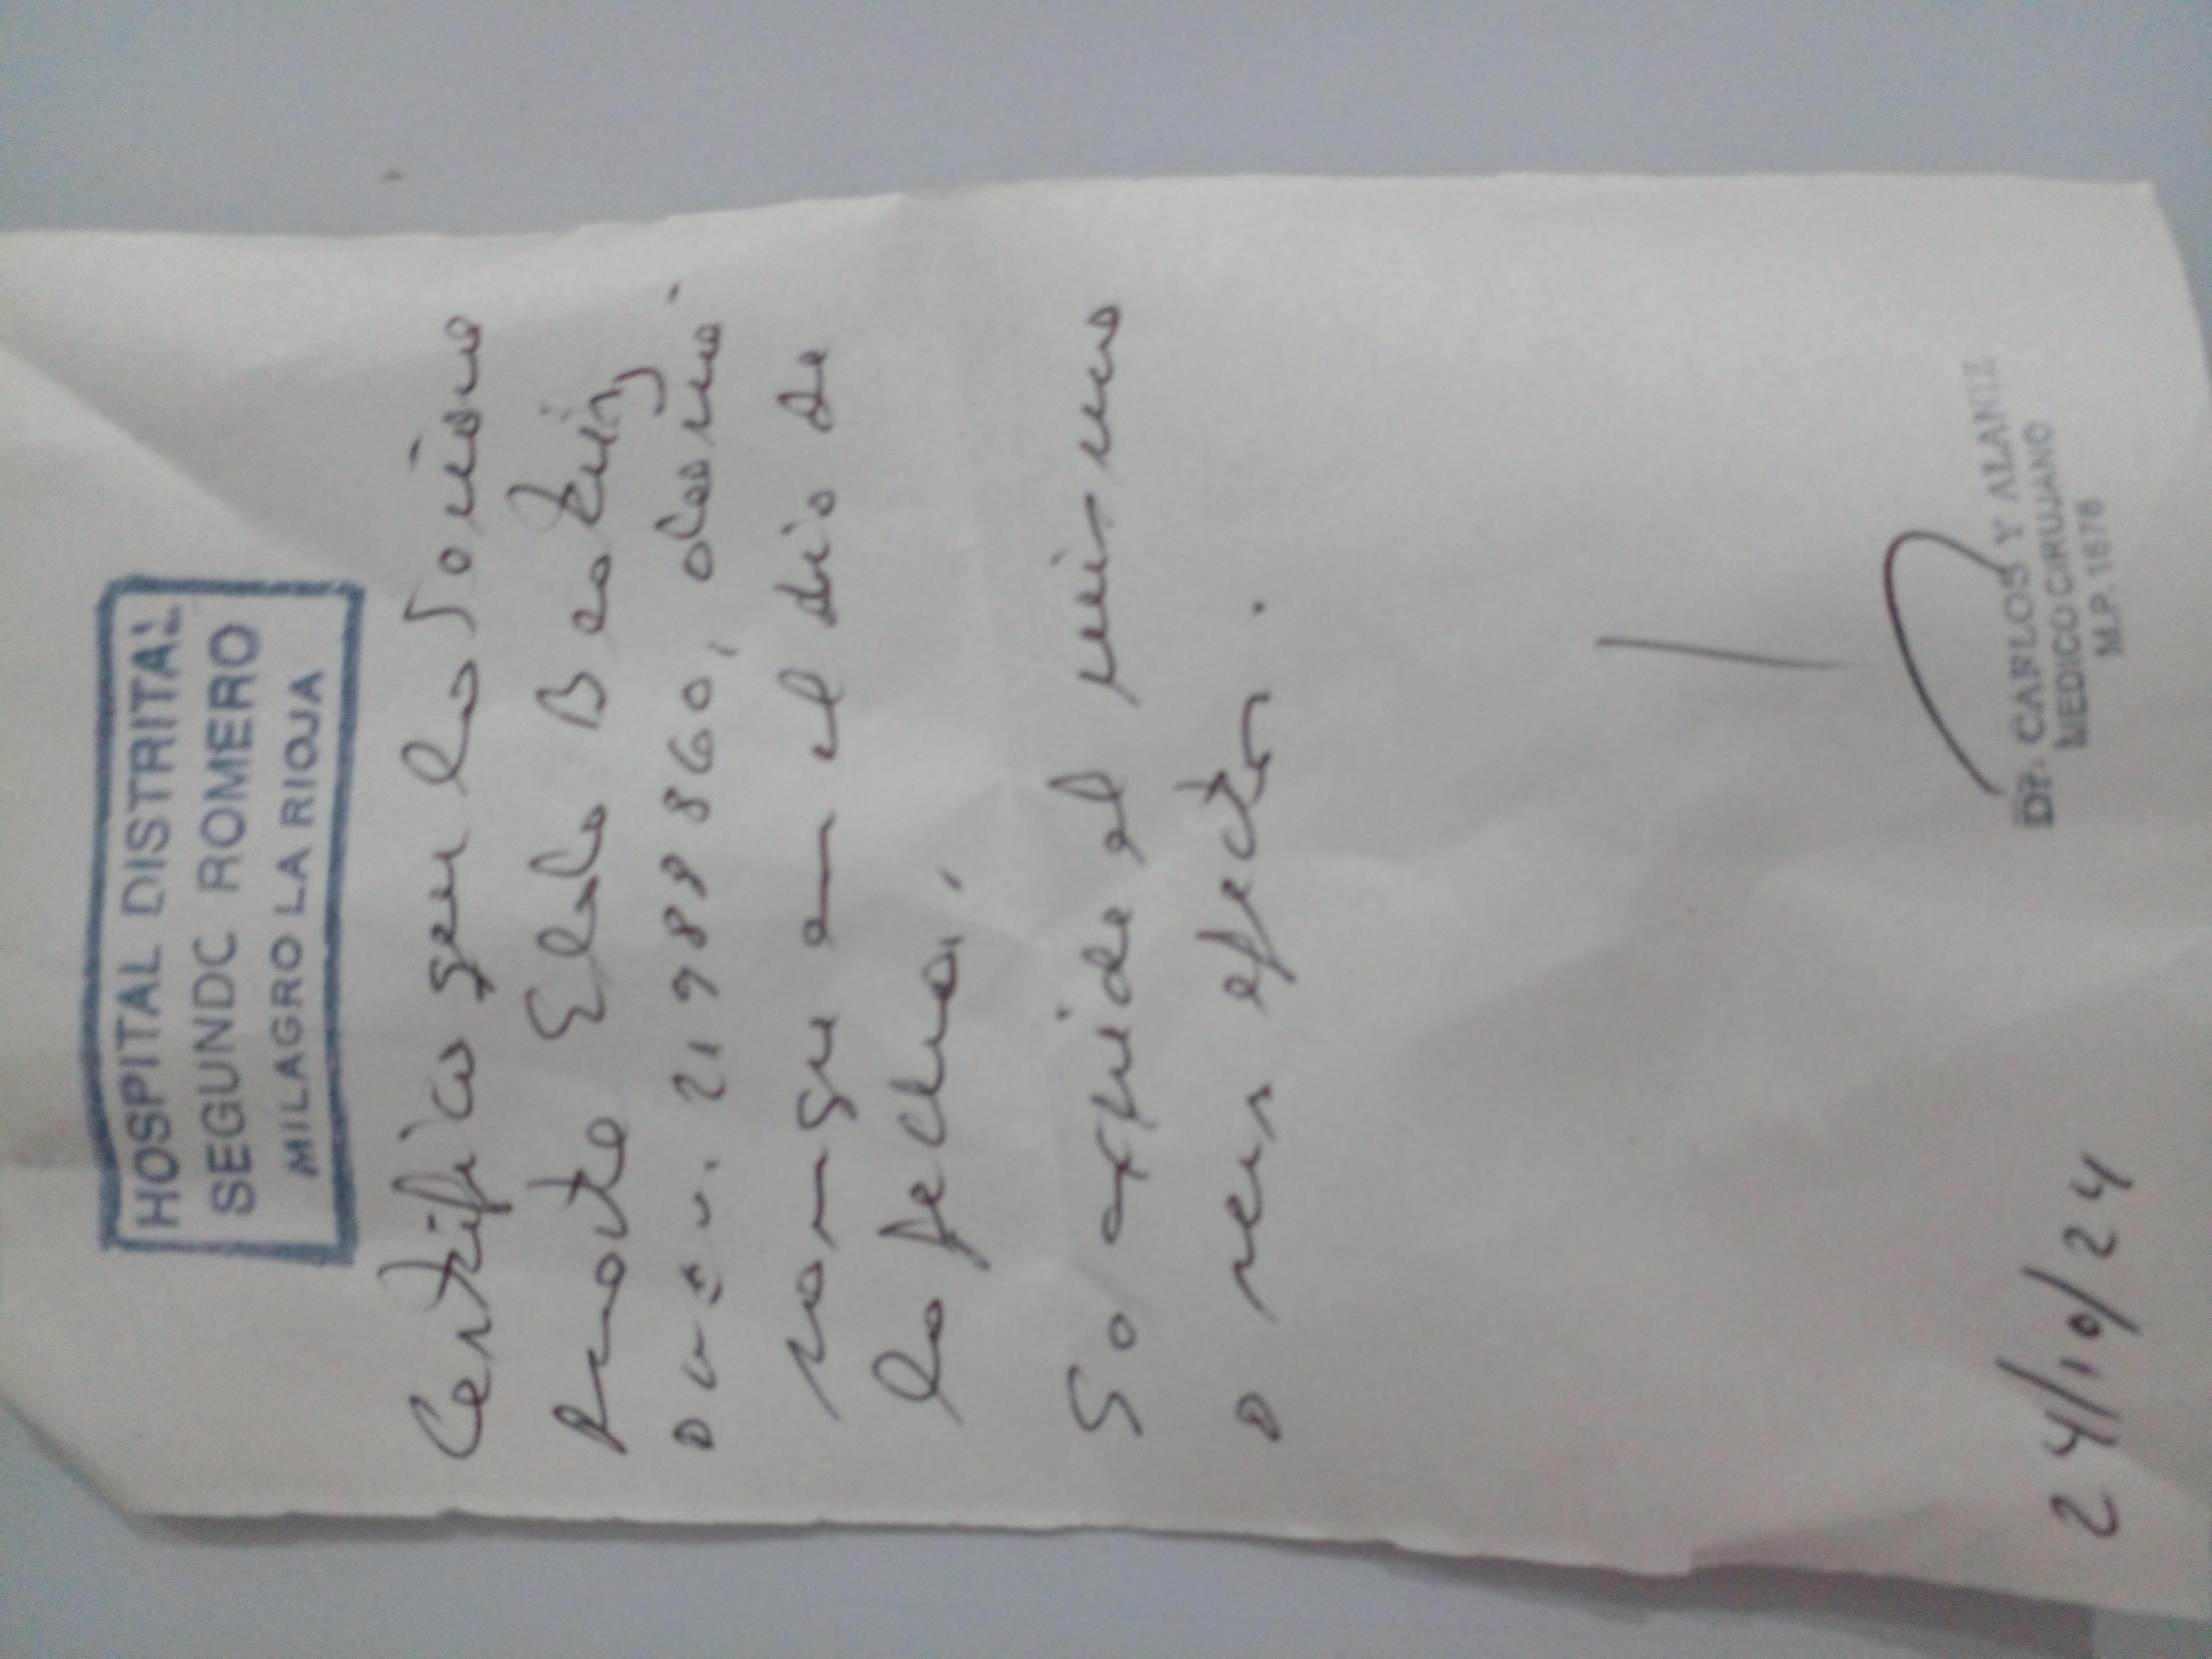 HOSPITAL DISTRITAL
SEGUNDO ROMERO
MILAGRO LA RIOJA
Certifico que la Señora
Elda Beatriz
D.N.I. 21988860, dono
sangre en el dia de
la fecha.
Se expide el mismo
a sus efectos.
24/10/24
Dr. CARLOS Y ALANIZ
MEDICO CIRUJANO
M.P. 1678